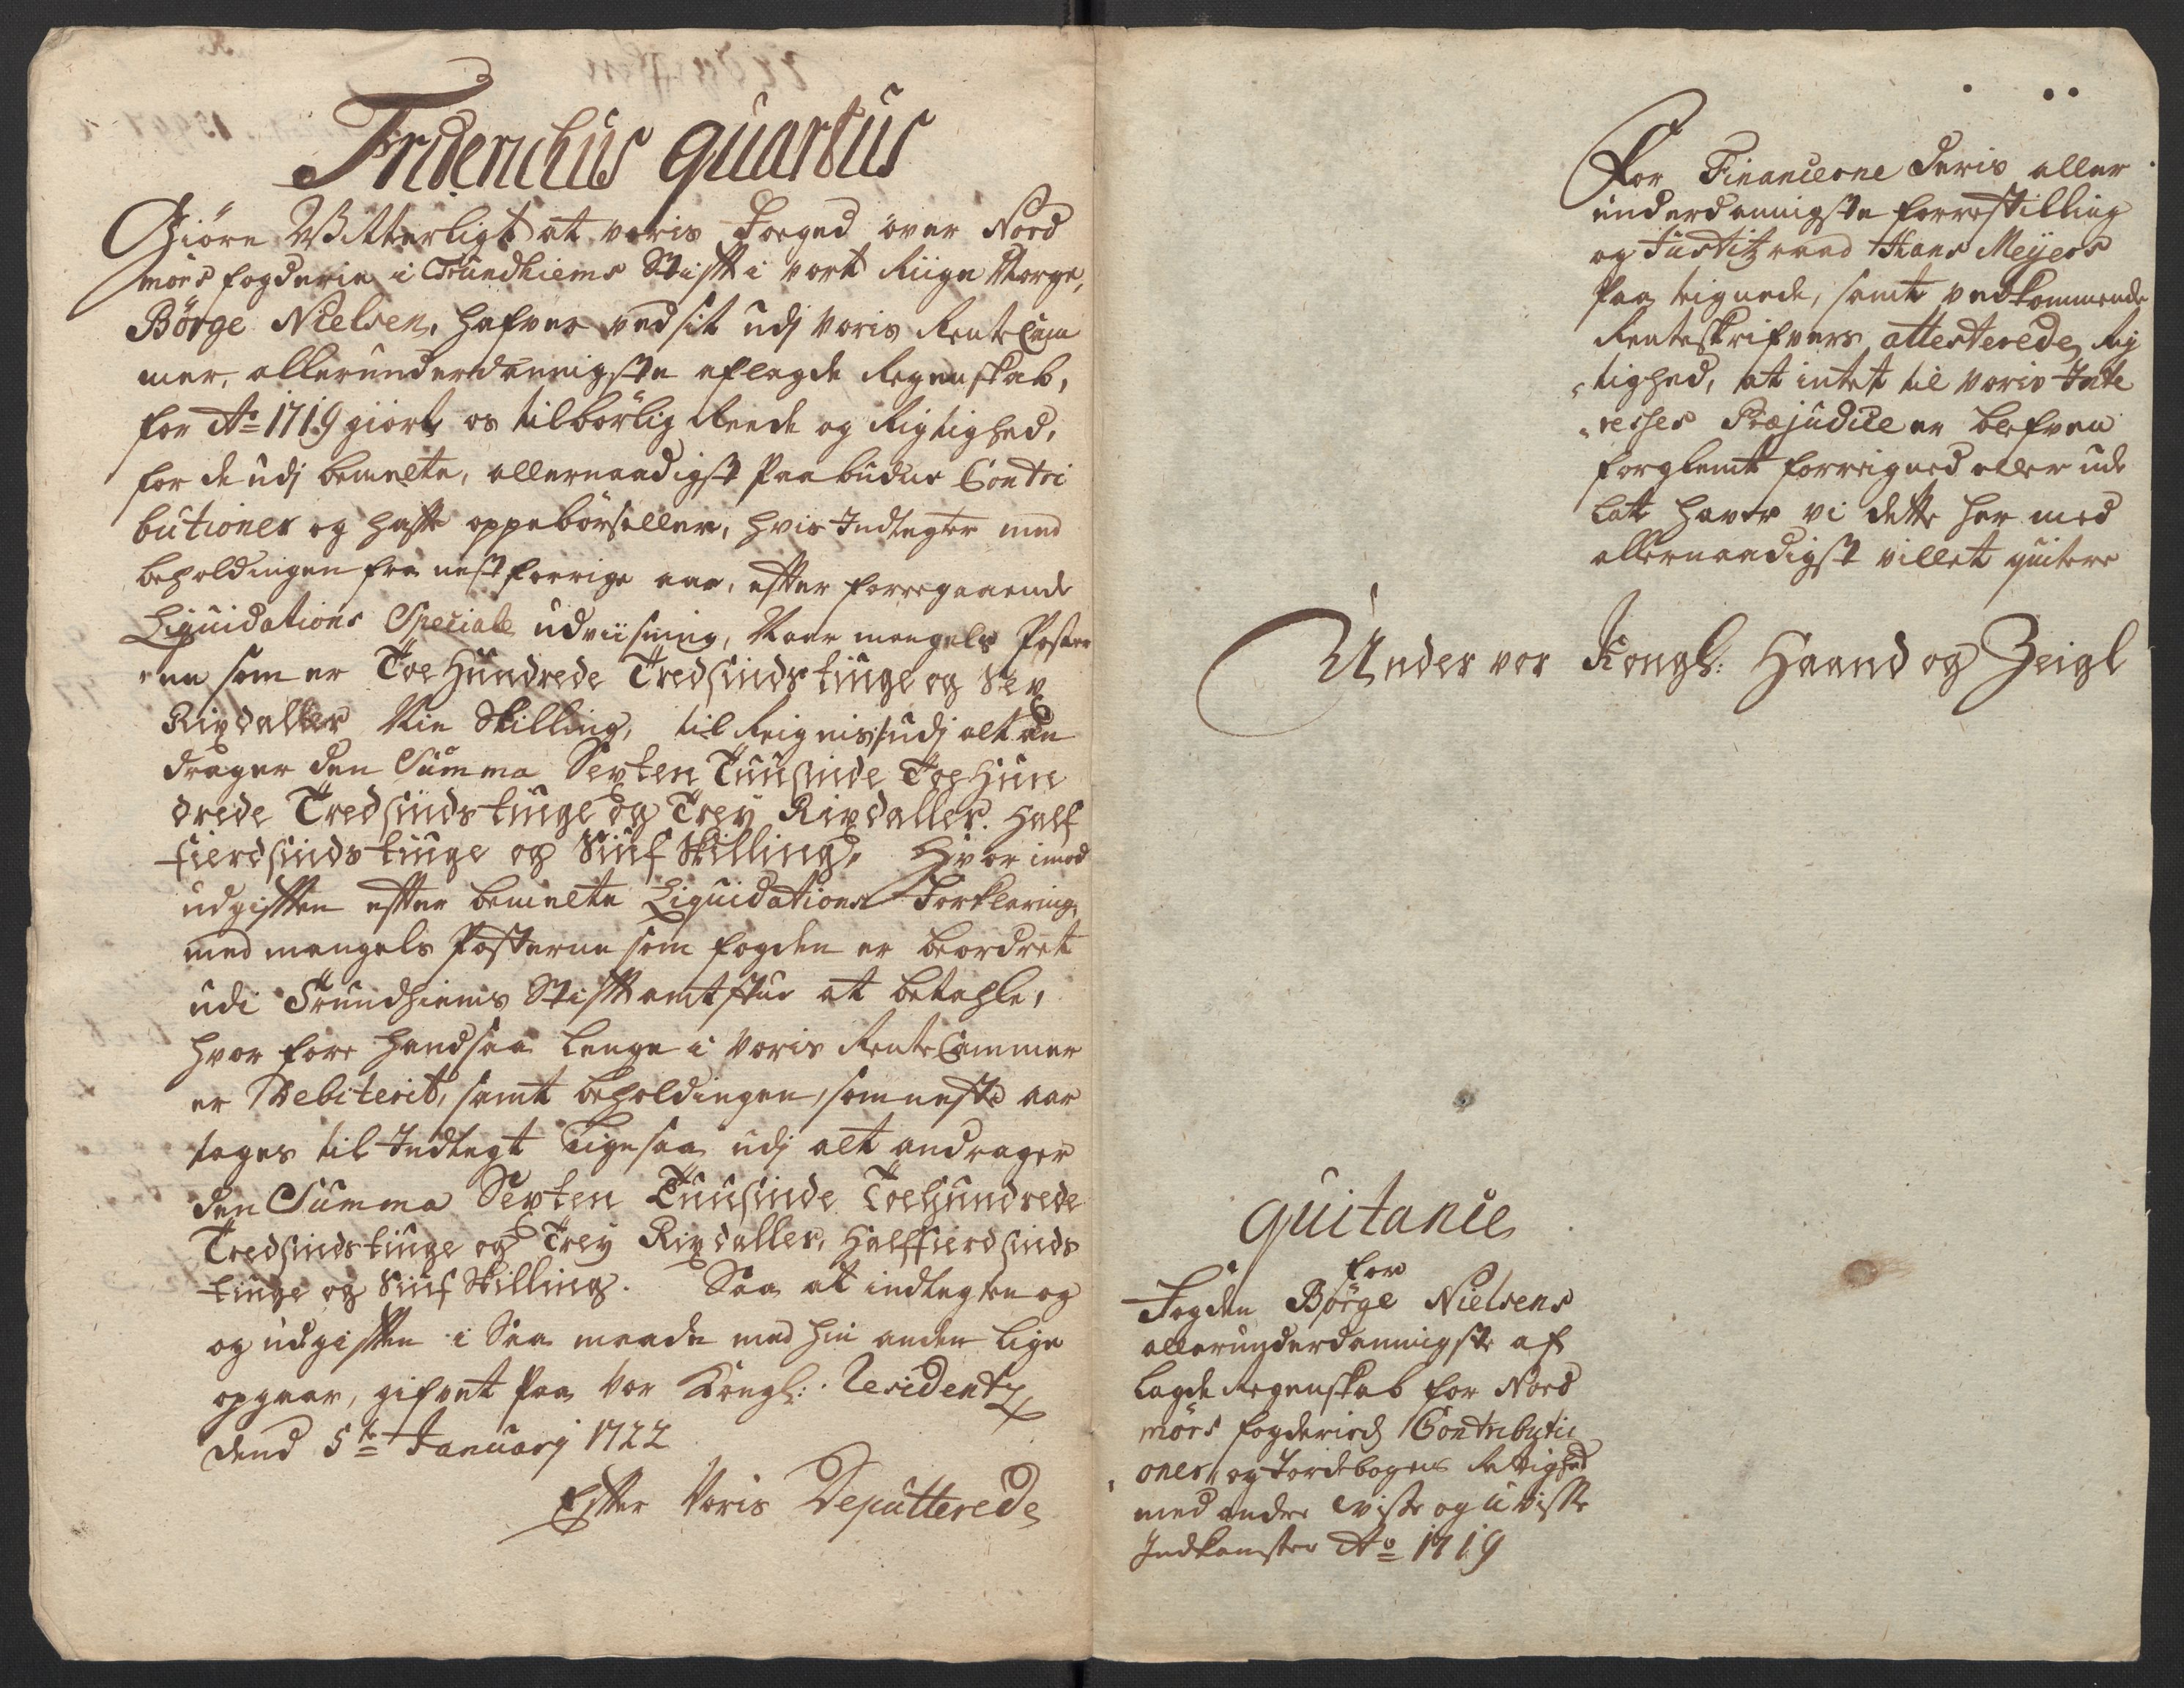 Fridericus quartus
Giöre Witterligt at voris Foeged över Nord
mörs fogderie i Trundhiems Stift i vort Riige Norge,
Börge Nielsen, hafver ved sit udj Voris RenteCam
mer, allerunderdannigste aflagde Regenskab,
for Ao 1719 giort os tilbörlig Reede og Rigtighed,
for de udj bemelte, allernaadigst Paabudne Contri
butioner og hafte oppebörseller, hvis Indtegter med
beholdingen fra nest forrige aar, efter forregaaende
Liquidations Speciale udviisning, Naar mangels Poster
ne som er Toe Hundrede Tredsindstiuge og Sex
Rixdaller Nie Skilling, til Reignis udj alt an
drager den Summa Sexten Tuusinde Toe Hun
drede Tredsindstiuge og Trey Rixdaller. Half
fierdsindstiuge og Siuf Skilling. Hvor imod
udgiften efter bemelte Liquidations Forklaring,
med mangels Posterne som fogden er beordret
udi Trundhiems Stiftamtstue at betahle,
hvor fore hand saa lenge i Voris RenteCammer
er Debiterit, samt beholdingen, som neste aar
tages til Indtegt ligesaa udj alt andrager
den Summa Sexten Tuusinde ToeHundrede
Tredsindstiuge og Trey Rixdaller, Halffierdsinds
tiuge og Siuf Skilling. Saa at indtegten og
og udgiften i Saa maade med hin anden lige
opgaar, gifvet paa Vor Kongl: Residentz
dend 5te Januarj 1722
Efter Voris Deputterede
For Financerne deris aller
underdannigste forrestilling
og Justitzraad Hans Meyers
Paa teignede, samt vedkommende
Renteskrifvers attesterede Rig
tighed, at intet til Voris Inte
resses Præjudice er blefven
forglemt forreigned eller ude
latt haver vi dette her med
allernaadigst villet quitere
Under vor Kongl: Haand og Zeigl
quitance
for
Fogden Börge Nielsens
allerunderdannigste af
lagde Regenskab for Nord
mörs fogderies Contributi
oner, og Jordebogens Rettighed
med andre visse og u visse
Indkomster Ao 1719